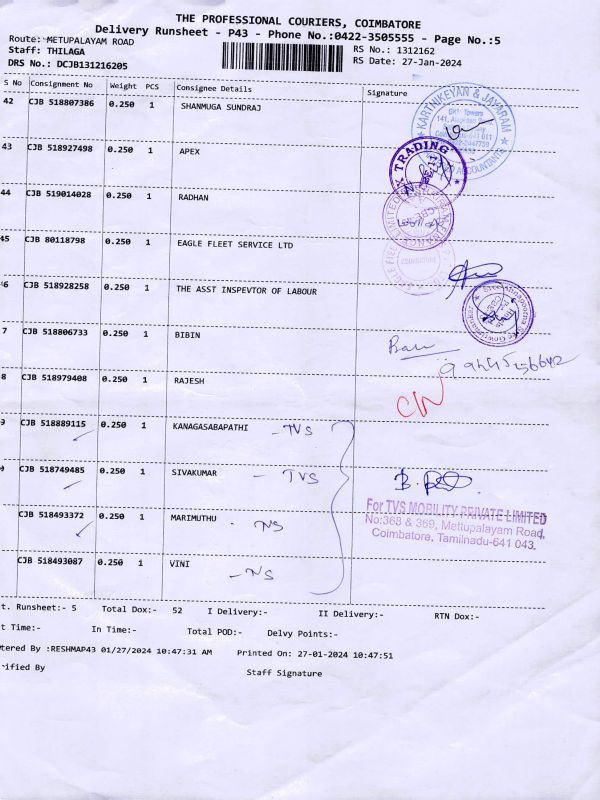 THE PROFESSIONAL COURIERS, COIMBATORE
Delivery Runsheet - P43 - Phone No.:0422-3505555 - Page No.:5
Route: METUPALAYAM ROAD
Staff: THILAGA
DRS No.: DCJB131216205
RS No.: 1312162
RS Date: 27-Jan-2024
S No Consignment No Weight PCS Consignee Details Signature
42 CJB 518807386 0.250 1 SHANMUGA SUNDRAJ
KARTHIKEYAN & JAYARAM
43 CJB 518927498 0.250 1 APEX
TRADING
44 CJB 519014028 0.250 1 RADHAN
45 CJB 80118798 0.250 1 EAGLE FLEET SERVICE LTD
46 CJB 518928258 0.250 1 THE ASST INSPEVTOR OF LABOUR
7 CJB 518806733 0.250 1 BIBIN
8 CJB 518979408 0.250 1 RAJESH
9 CJB 518889115 0.250 1 KANAGASABAPATHI - TVS
0 CJB 518749485 0.250 1 SIVAKUMAR - TVS
CJB 518493372 0.250 1 MARIMUTHU
For TVS MOBILITY PRIVATE LIMITED
No:368 & 369, Mettupalayam Road,
Coimbatore, Tamilnadu-641 043.
CJB 518493087 0.250 1 VINI
t. Runsheet:- 5 Total Dox:- 52 I Delivery:- II Delivery:- RTN Dox:-
t Time:- In Time:- Total POD:- Delvy Points:-
tered By :RESHMAP43 01/27/2024 10:47:31 AM Printed On: 27-01-2024 10:47:51
rified By Staff Signature